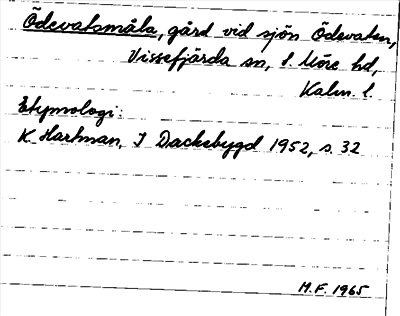 Ödevatsmåla, gård vid sjön Ödevaten,
Vissefjärda sn, S. Möre hd,
Kalm. l.
Etymologi:
K. Hartman, I Dackebygd 1952, s. 32
M.F. 1965